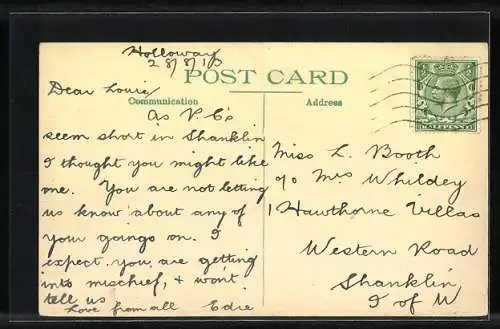 Holloway
28/8/13
POST CARD
Dear Louie,
Communication
as P. C's
seem short in Shanklin
I thought you might like
me. You are not letting
us know about any of
your goings on. I
expect you are getting
into mischief, & won't
tell us
Love from all Edie
Address
Miss L. Booth
c/o Mrs Whildey
1 Hawthorne Villas
Western Road
Shanklin
I of W
HALFPENNY